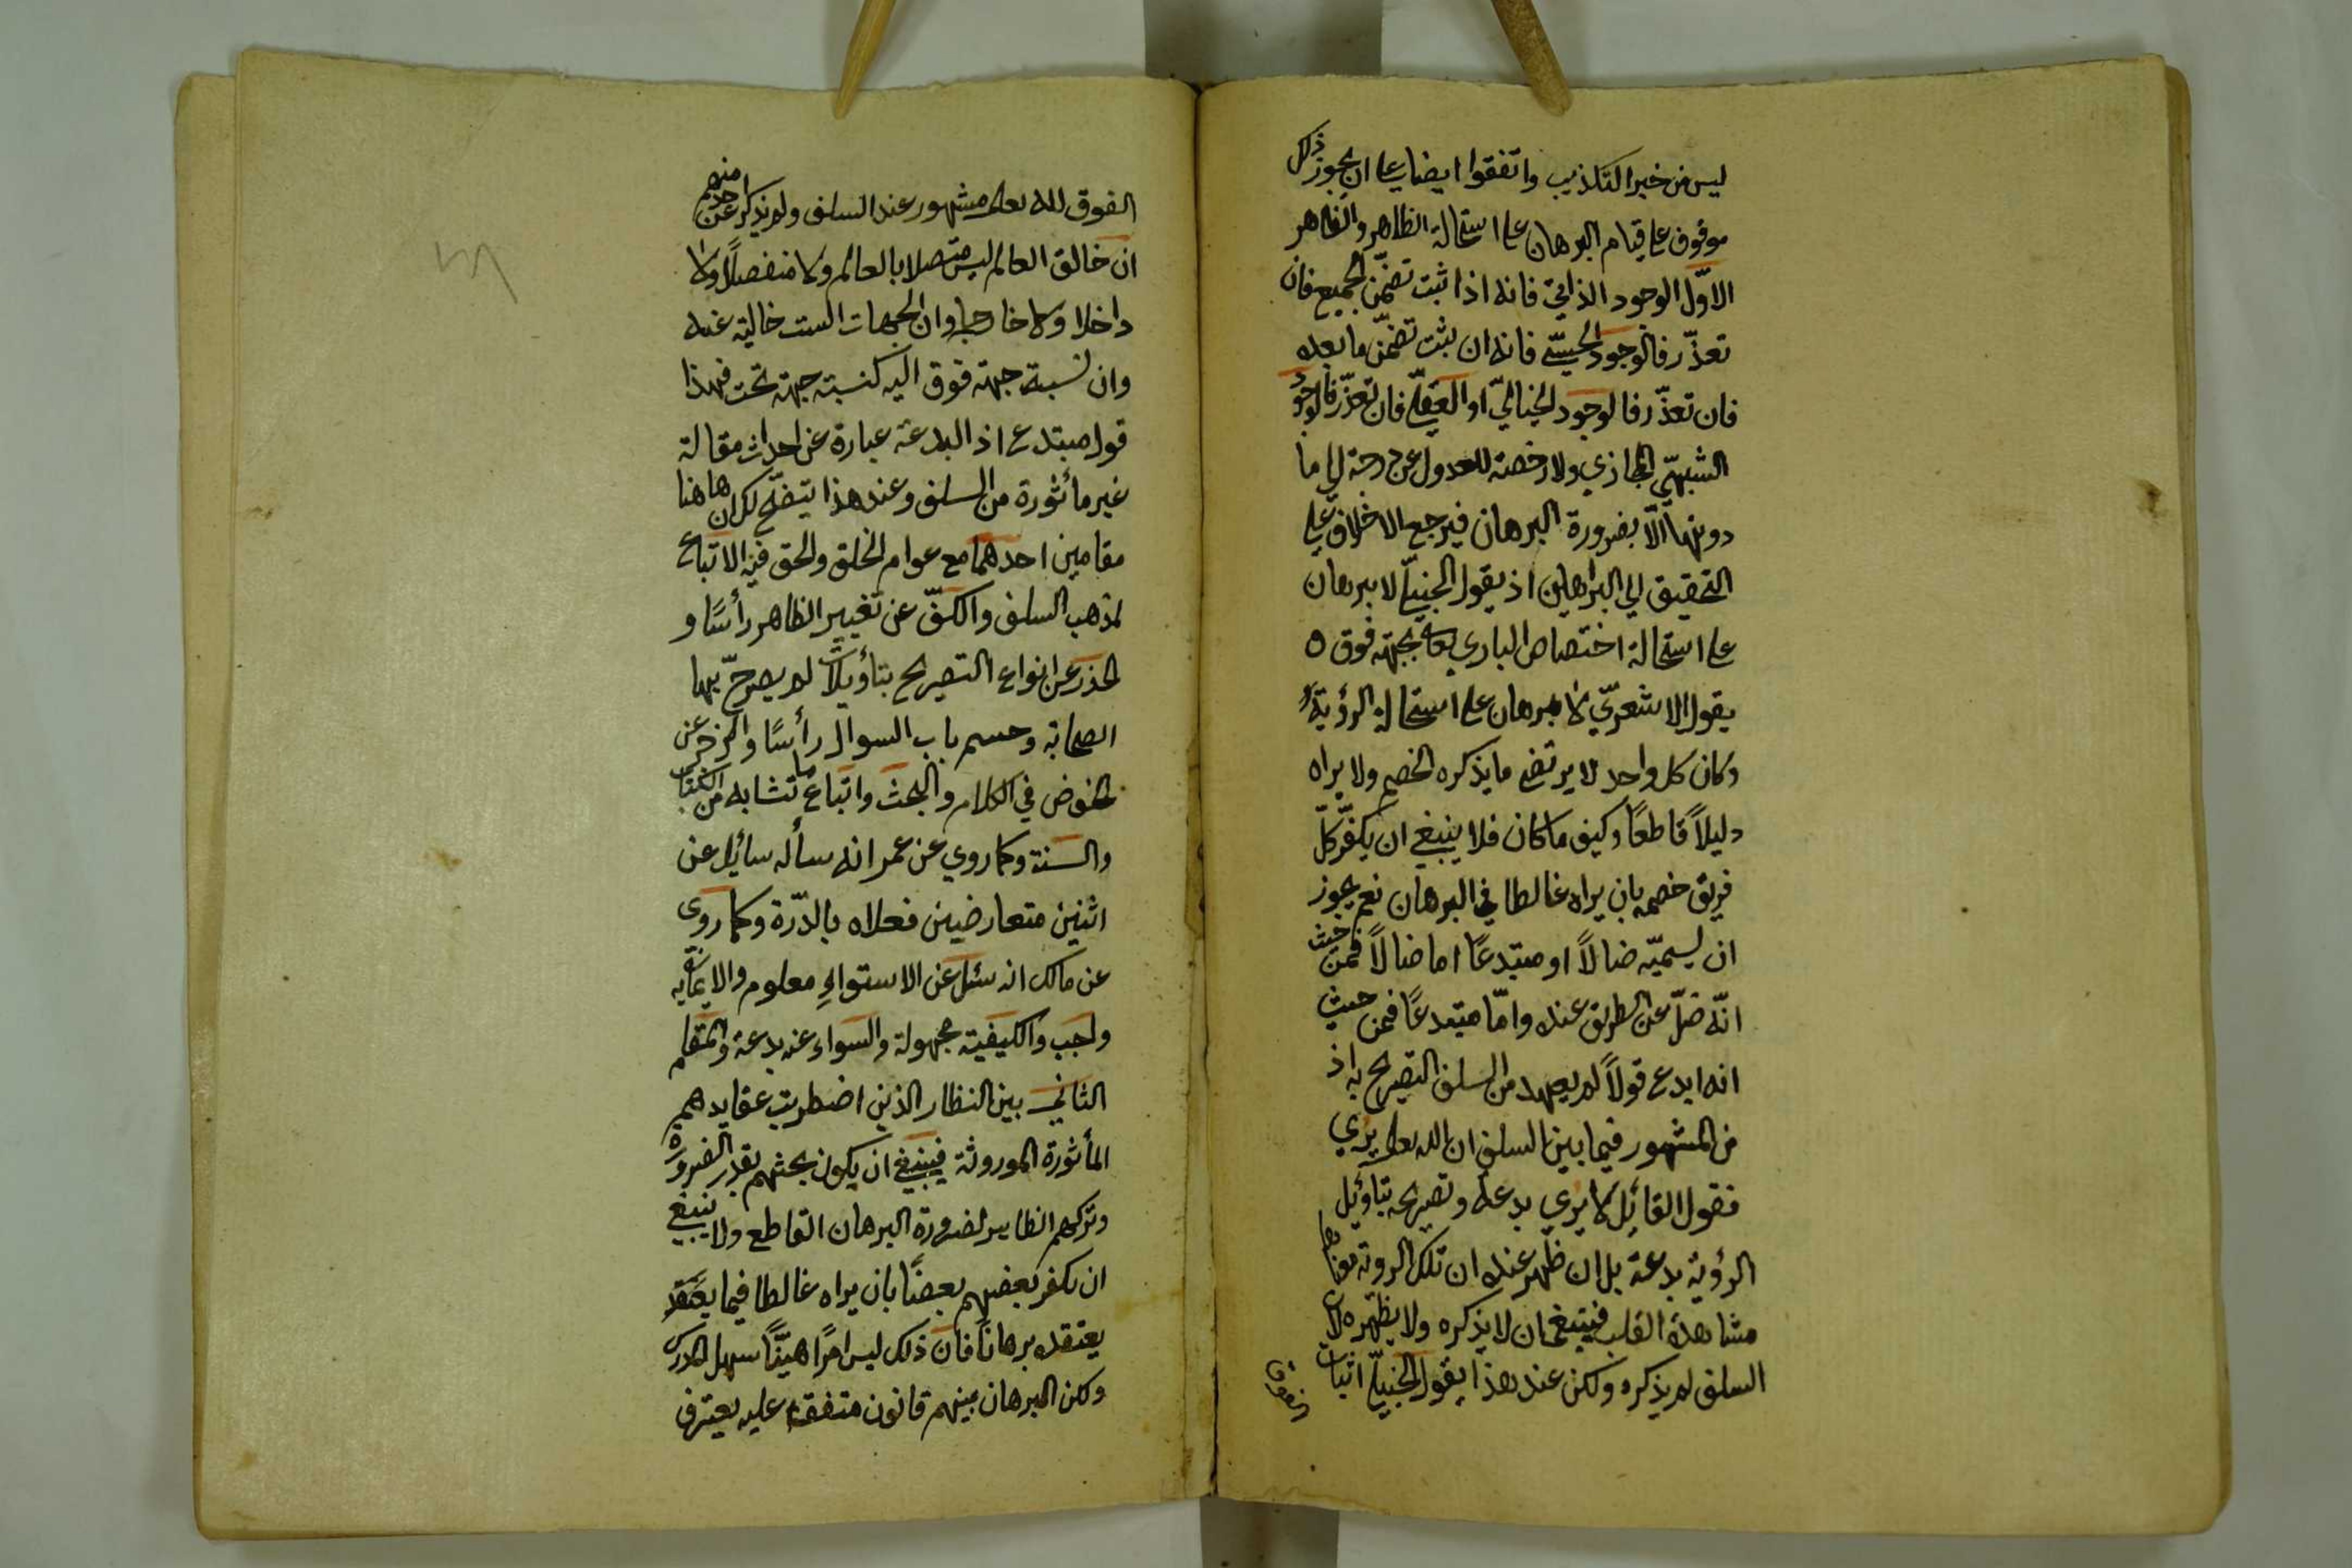 ليس من خبر التكذيب واتفقوا ايضا على ان يجوز ذلك
موقوف على قيام البرهان على استحالة الظاهر والظاهر
الاوّل الوجود الذاتيّ فانه اذا ثبت تضمّن الجميع فان
تعذّر فالوجود الحسّيّ فانه ان ثبت تضمّن ما بعده
فان تعذّر فالوجود الخياليّ او العقليّ فان تعذّر فالوجود
الشبهيّ المجازي ولا رخصة للعدول عن درجة الى ما
دونها الّا بضرورة البرهان فيرجع الاختلاف على
التحقيق الى البراهين اذ يقول الحنبليّ لا برهان
على استحالة اختصاص الباري تعالى بجهة فوق و
يقول الاشعريّ لا برهان على استحالة الرؤية
وكان كل واحد لا يرتضي ما يذكره الخصم ولا يراه
دليلاً قاطعاً وكيف ما كان فلا ينبغي ان يكفّر كلّ
فريق خصمه بان يراه غالطا في البرهان نعم يجوز
ان يسميّه ضالاً او مبتدعاً اما ضالاً فمن حيث
انّه ضلّ عن الطريق عنده وامّا مبتدعاً فمن حيث
انه ابدع قولاً لم يعهد من السلف التصريح به اذ
من المشهور فيما بين السلف ان الله تعالى يُرى
فقول القائل لا يُرى بدعة وتصريحه بتأويل
الرؤية بدعة بل ان ظهر عنده ان تلك الروية معناها
مشاهدة القلب فينبغي ان لا يذكره ولا يظهره لان
السلف لم يذكره ولكن عند هذا يقول الحنبليّ اثبات
الفوق
الفوق لله تعالى مشهور عند السلف ولم يذكر احد منهم
ان خالق العالم ليس متصلا بالعالم ولا منفصلاً ولا
داخلا ولا خارجا وان الجهات الست خالية عنه
وان نسبة جهة فوق اليه كنسبة جهة تحت فهذا
قول مبتدع اذ البدعة عبارة عن احداث مقالة
غير مأثورة من السلف وعند هذا يتضح لك ان هاهنا
مقامين احدهما مع عوام الخلق والحق فيه الاتباع
لمذهب السلف والكفّ عن تغيير الظاهر رأسًا و
الحذر عن انواع التصريح بتأويلات لم يصرحّ بها
الصحابة وحسم باب السوال رأسًا والزجر عن
الخوض في الكلام والبحث واتباع ما تشابه من الكتاب
والسنة وكما روي عن عمر انه سأله سائل عن
اثنين متعارضين فعلاه بالدّرّة وكما روى
عن مالك انه سئل عن الاستواءِ معلوم والايمان به
واجب والكيفية مجهولة والسواء عنه بدعة والمقام
الثاني بين النظار الذين اضطربت عقايدهم
المأثورة الموروثة فينبغي ان يكون بحثهم بقدر الضرورة
وتركهم الظاهر لضرورة البرهان القاطع ولا ينبغي
ان يكفر بعضهم بعضًا بان يراه غالطا فيما يعتقد
يعتقده برهانًا فان ذلك ليس امرًا هيّنًا سهل المدرك
وكن البرهان بينهم قانون متفقة عليه يعترف